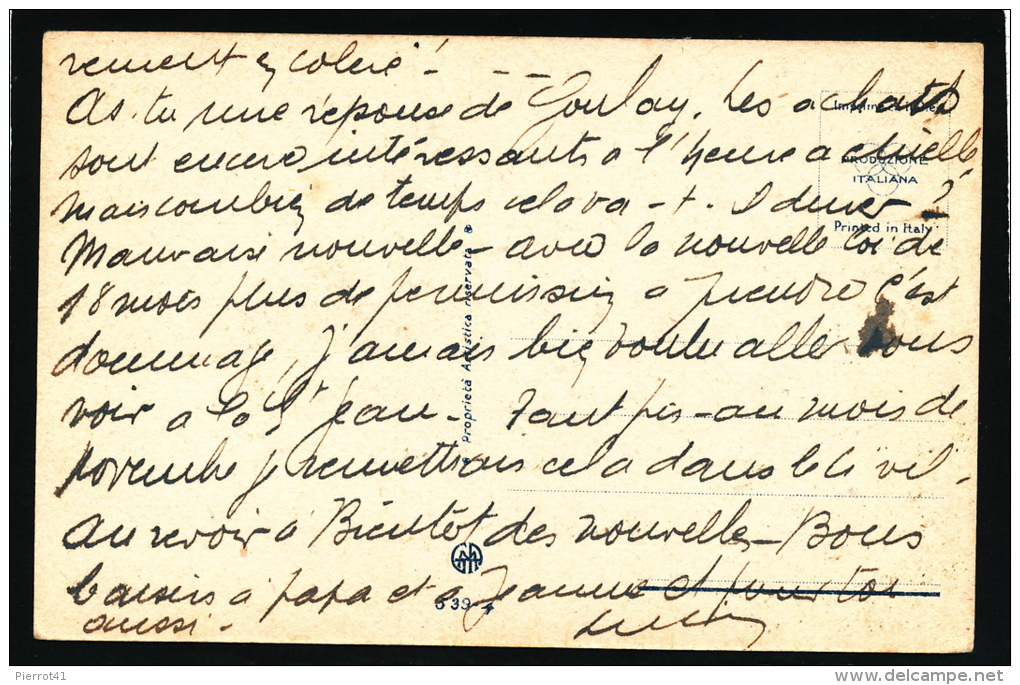 rement en colère ! - - -
As-tu une réponse de Goulay. Les achats
sont encore intéressants a l'heure actuelle
mais combien de temps cela va-t-il durer - ?
Mauvaise nouvelle - avec la nouvelle loi de
18 mois plus de permission a prendre c'est
dommage, j'aurais bien voulu aller vous
voir a la St Jean - Tant pis - au mois de
novembre je remettrais cela dans le civil -
Au revoir à Bientôt des nouvelles - Bons
baisers a papa et a Jeanne et pour toi
aussi -
Lucien
Imprimé en Italie
PRODUZIONE
ITALIANA
Printed in Italy
Proprietà Artistica riservata
639-4
Pierrot41
www.delcampe.net